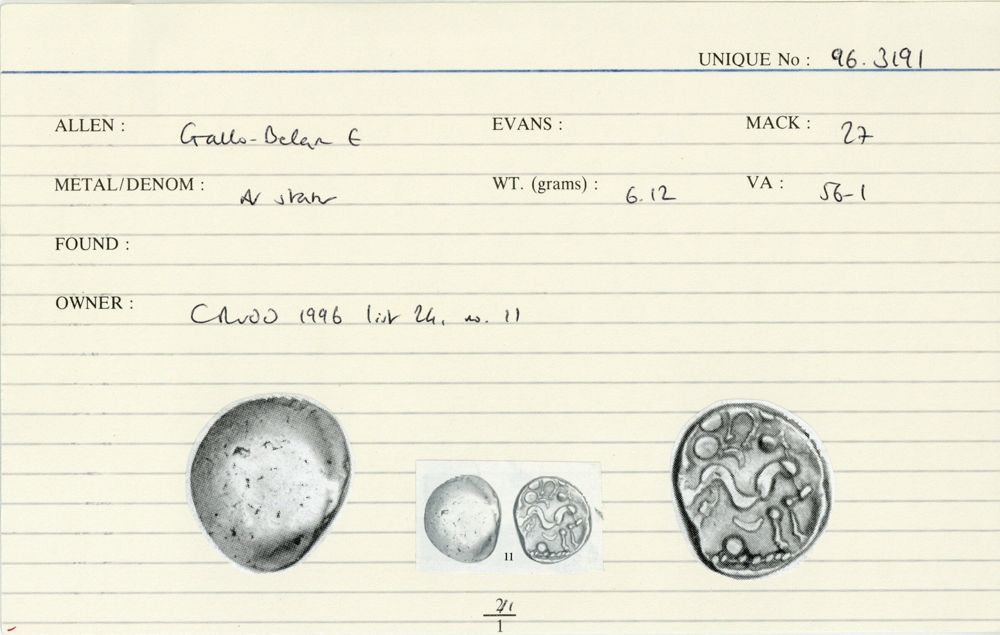 UNIQUE No : 96.3191
ALLEN : Gallo-Belgic E EVANS : MACK : 27
METAL/DENOM : AV stater WT. (grams) : 6.12 VA : 56-1
FOUND :
OWNER : 1996 list 24, no. 11
11
2/1
1